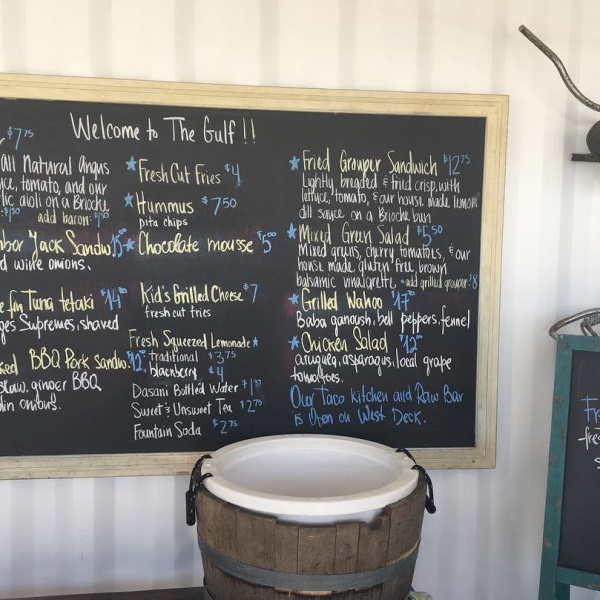 Welcome to The Gulf!!
$7 75
All Natural Angus
tomato, and our
aioli on a Brioche
add bacon: $1 50
Jack Sandw.
wine onions.
Tuna tetaki $14
Supremes, shaved
BBQ Pork Sandw. 12
slaw, ginger BBQ
onions.
Fresh Cut Fries $4
Hummus $7 50
pita chips
Chocolate mousse $5 00
Kid's Grilled Cheese $7
fresh cut fries
Fresh Squeezed Lemonade
traditional $3 75
blackberry $4
Dasani Bottled Water
Sweet & Unsweet Tea $2 75
Fountain Soda $2 75
Fried Grouper Sandwich $12 75
Lightly breaded & fried crisp, with
lettuce, tomato, & our house made lemon
dill sauce on a Brioche bun
Mixed Green Salad $5 50
Mixed greens, cherry tomatoes, & our
house made, gluten free, brown
balsamic vinaigrette. add grilled grouper $8
Grilled Wahoo
Baba ganoush, bell peppers, fennel
Chicken Salad
arugula, asparagus, local grape
tomatoes.
Our Taco Kitchen and Raw Bar
is Open on West Deck.